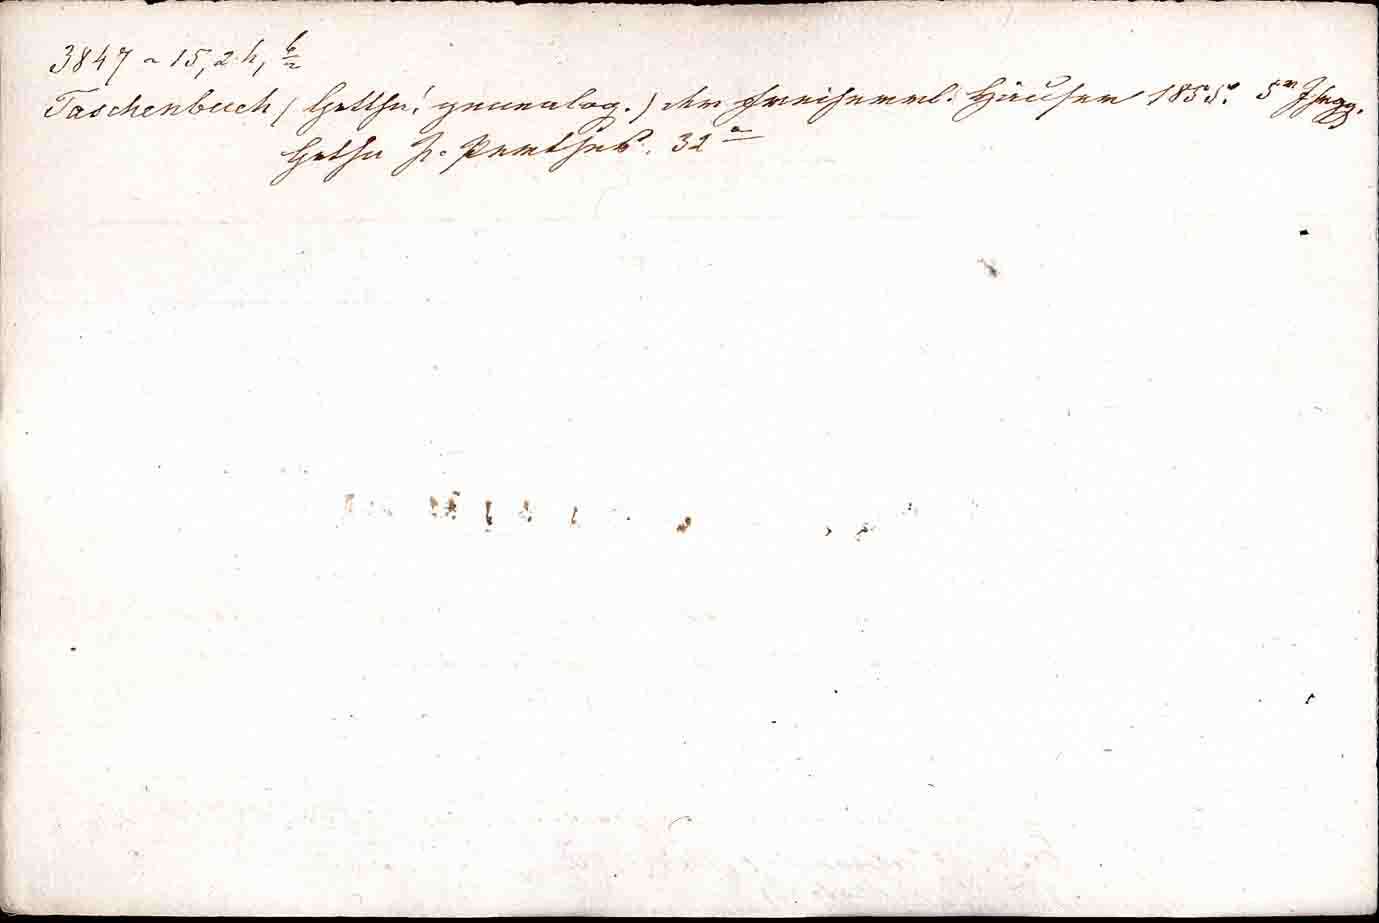 3847 ~ 15,2 h, b/2
Taschenbuch (Gotha. genealog.) der freiherrl. Häuser 1855. 5r Jhrgg.
Gotha J. Perthes. 32°